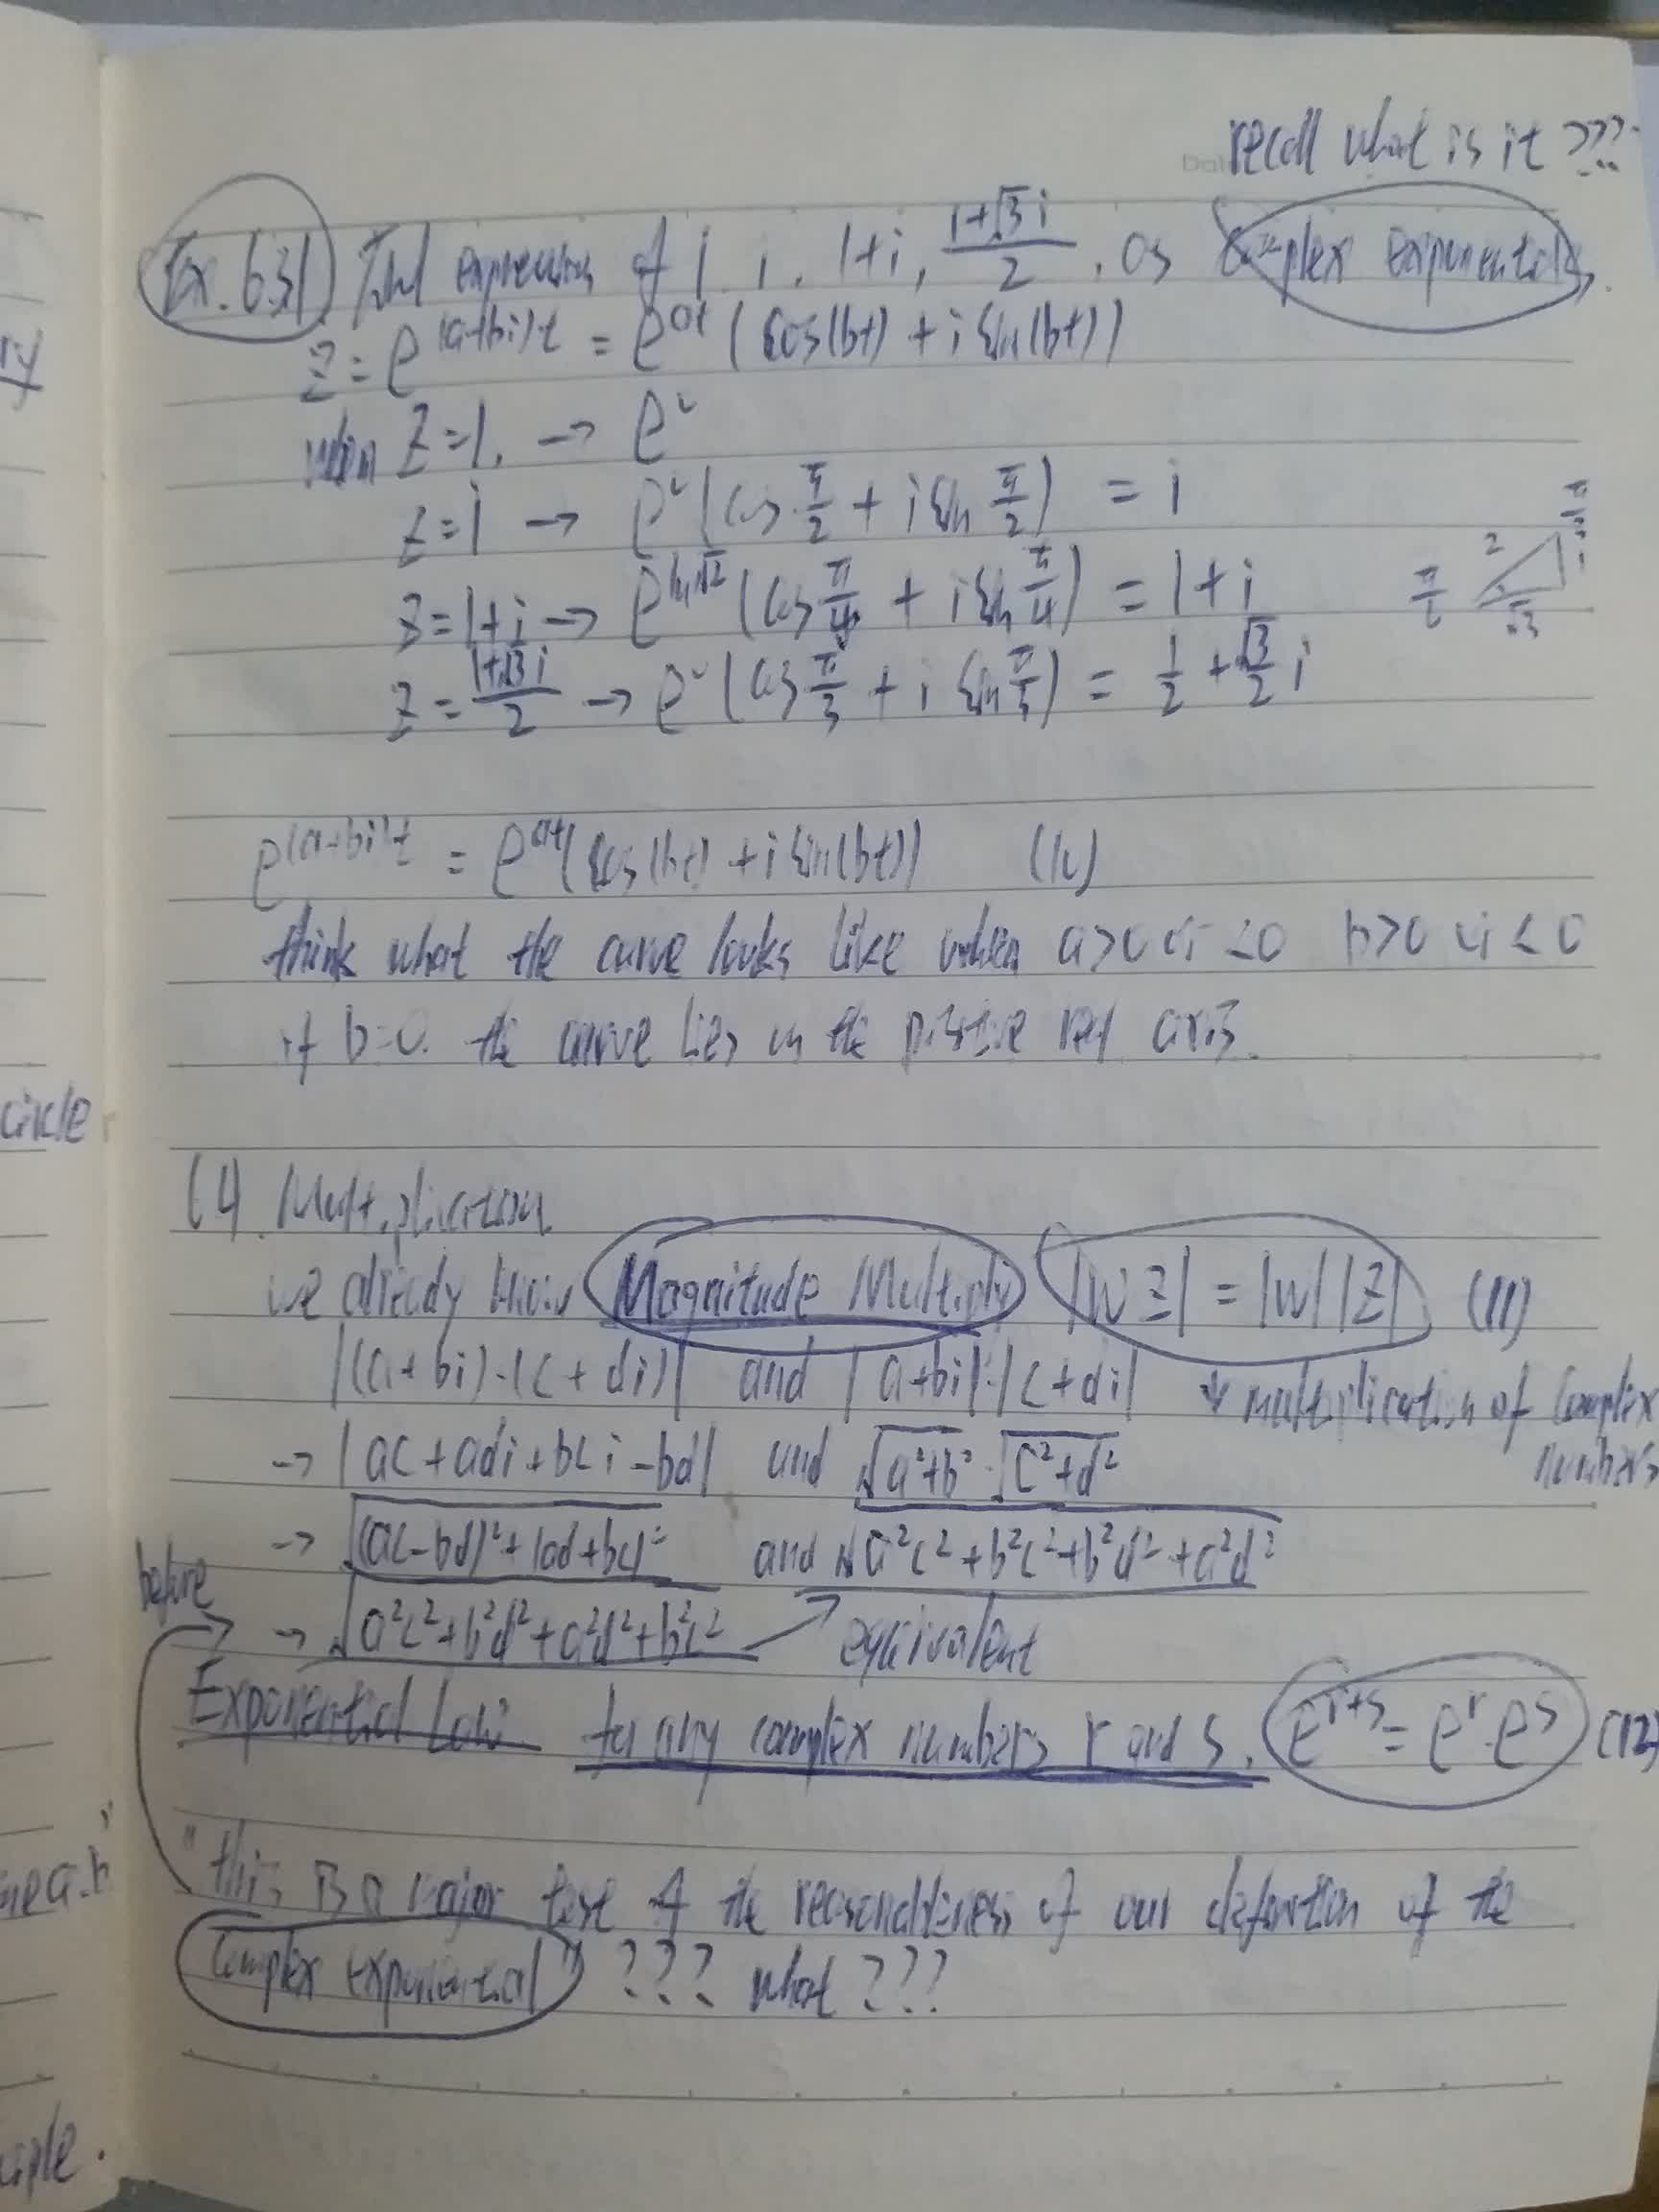 recall what is it ???
Ex. 6.3.1 Find expressions of 1, i, 1+i, (1+√3i)/2, as complex exponentials.
z = e^(a+bi)t = e^at (cos(bt) + i sin(bt))
when z=1, → e^0
z=i → e^0 (cos π/2 + i sin π/2) = i
z=1+i → e^ln√2 (cos π/4 + i sin π/4) = 1+i
z = (1+√3i)/2 → e^0 (cos π/3 + i sin π/3) = 1/2 + √3/2 i
2 √3
e^(a+bi)t = e^at (cos(bt) + i sin(bt)) (10)
think what the curve looks like when a>0 or <0 b>0 or <0
if b=0. the curve lies on the positive real axis.
(4). Multiplication
we already know Magnitude Multiply |wz| = |w||z| (11)
|(a+bi)·(c+di)| and |a+bi|·|c+di| ↓ multiplication of complex numbers
→ |ac+adi+bci-bd| and √a²+b² · √c²+d²
→ √(ac-bd)²+(ad+bc)² and √a²c²+b²c²+b²d²+a²d²
before
→ √a²c²+b²d²+a²d²+b²c² equivalent
Exponential Law for any complex numbers r and s, e^r+s = e^r · e^s (12)
"this is a major test of the reasonableness of our definition of the
complex exponential" ??? what ???
circle